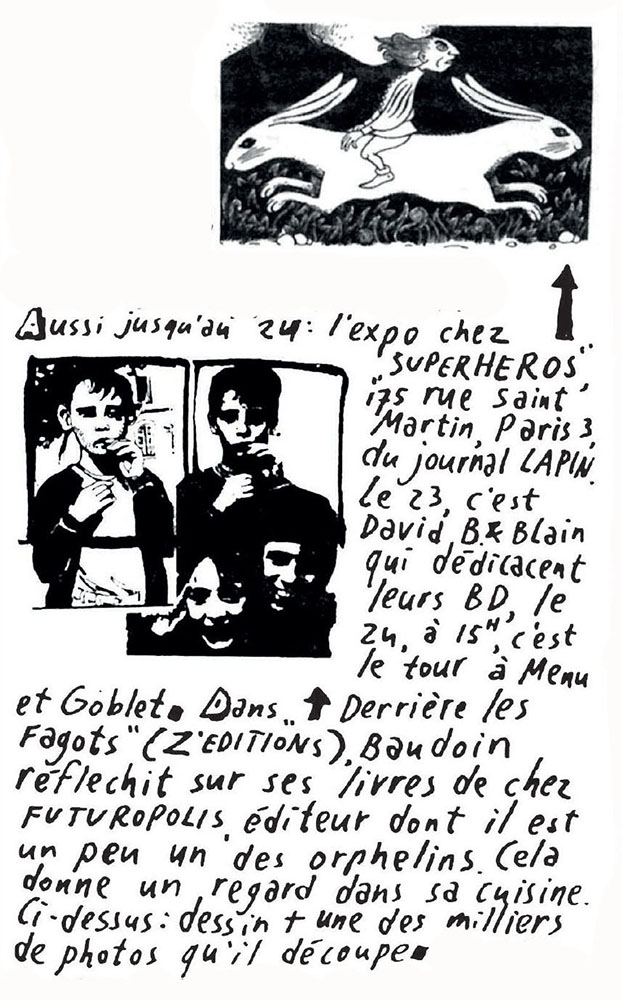 Aussi jusqu'au 24: l'expo chez
"SUPERHEROS",
175 rue Saint
Martin, Paris 3,
du journal LAPIN.
Le 23, c'est
David B. & Blain
qui dédicacent
leurs BD, le
24, à 15H, c'est
le tour à Menu
et Goblet. Dans " Derrière les
Fagots" (Z'EDITIONS), Baudoin
réflechit sur ses livres de chez
FUTUROPOLIS, éditeur dont il est
un peu un des orphelins. Cela
donne un regard dans sa cuisine.
Ci-dessus: dessin + une des milliers
de photos qu'il découpe